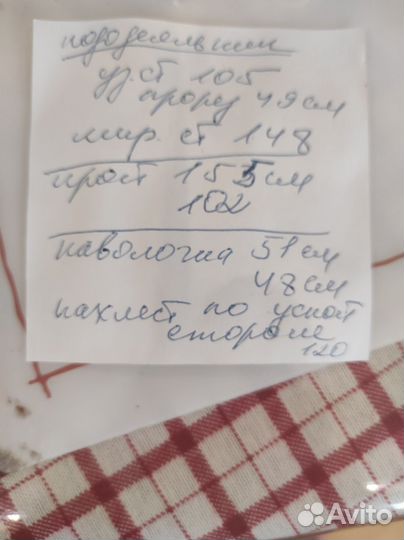 пододеяльник
уз. ст 105
прорез 49 см
шир. ст 148
прост 155 см
102
наволочка 51 см
48 см
нахлест по узкой
стороне
120
Avito